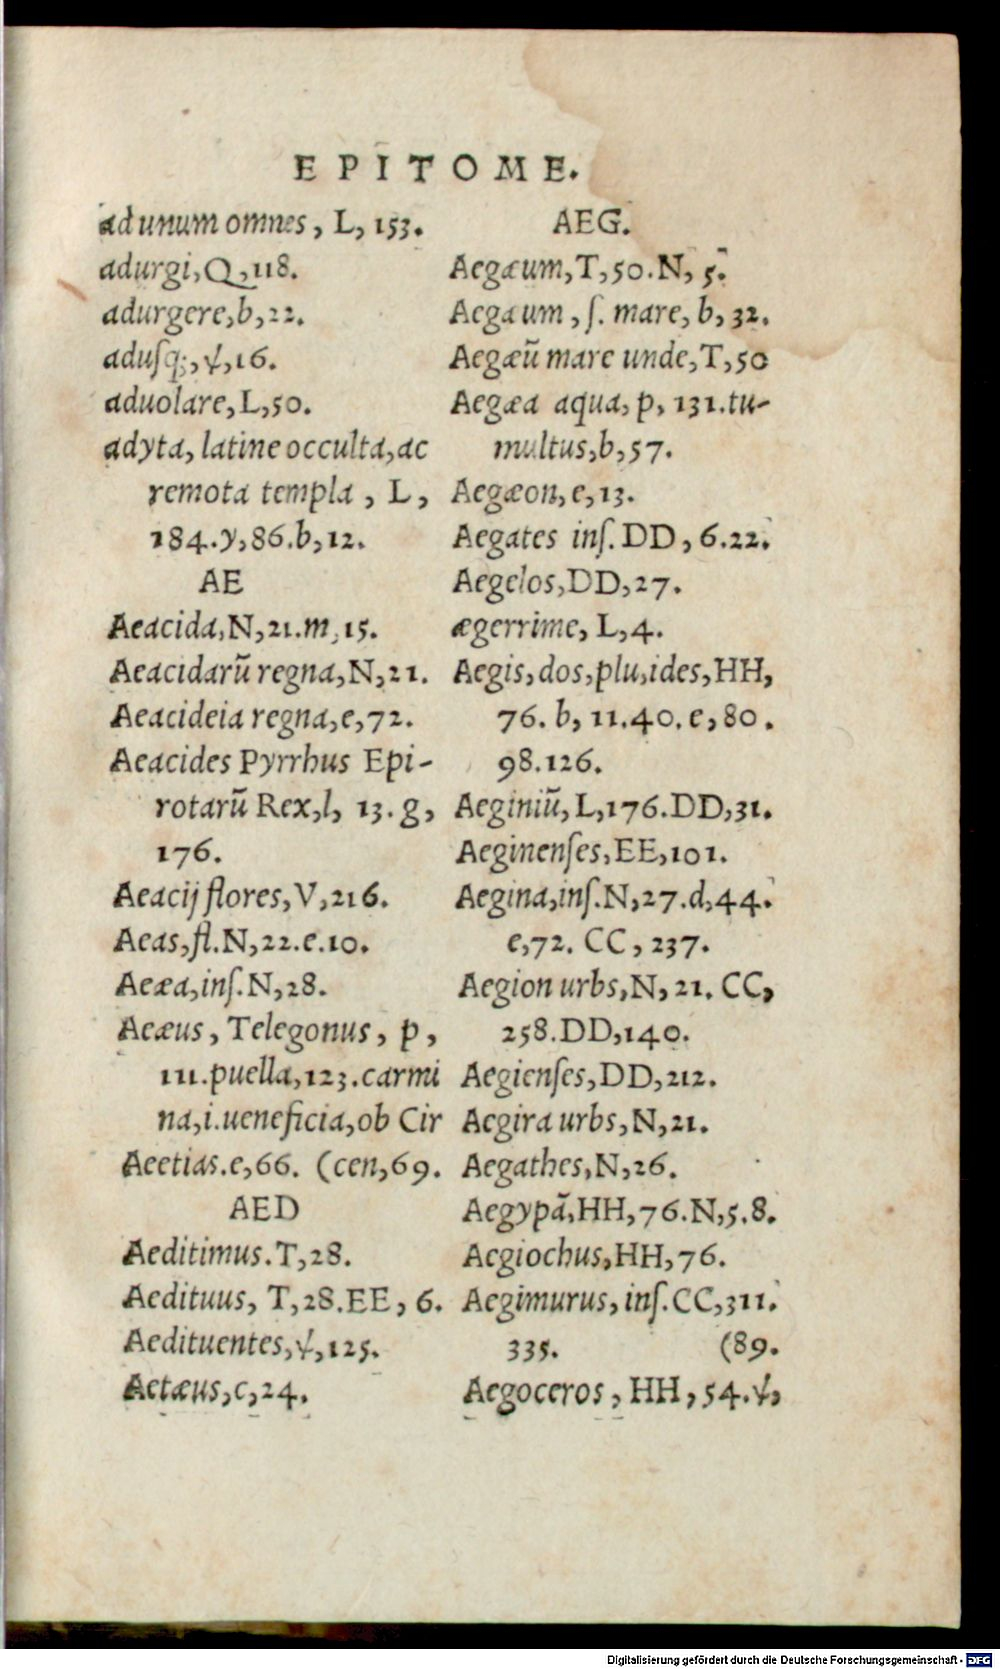 EPITOME.
ad unum omnes, L, 153.
adurgi, Q, 118.
adurgere, b, 22.
aduſq;, ψ, 16.
aduolare, L, 50.
adyta, latine occulta, ac
remota templa, L,
184. y, 86. b, 12.
AE
Aeacida, N, 21. m, 15.
Aeacidarū regna, N, 21.
Aeacideia regna, e, 72.
Aeacides Pyrrhus Epi-
rotarū Rex, l, 13. g,
176.
Aeacij flores, V, 216.
Aeas, fl. N, 22. e. 10.
Aeæa, inſ. N, 28.
Aeæus, Telegonus, p,
111. puella, 123. carmi
na, i. ueneficia, ob Cir
Aeetias. e, 66. (cen, 69.
AED
Aeditimus. T, 28.
Aedituus, T, 28. EE, 6.
Aedituentes, ψ, 125.
Aetæus, c, 24.
AEG.
Aegæum, T, 50. N, 5.
Aegaum, ſ. mare, b, 32.
Aegæū mare unde, T, 50
Aegæa aqua, p, 131. tu-
multus, b, 57.
Aegæon, e, 13.
Aegates inſ. DD, 6. 22.
Aegelos, DD, 27.
ægerrime, L, 4.
Aegis, dos, plu, ides, HH,
76. b, 11. 40. e, 80.
98. 126.
Aeginiū, L, 176. DD, 31.
Aeginenſes, EE, 101.
Aegina, inſ. N, 27. d, 44.
e, 72. CC, 237.
Aegion urbs, N, 21. CC,
258. DD, 140.
Aegienſes, DD, 212.
Aegira urbs, N, 21.
Aegathes, N, 26.
Aegypā, HH, 76. N, 5. 8.
Aegiochus, HH, 76.
Aegimurus, inſ. CC, 311.
335. (89.
Aegoceros, HH, 54. ψ,
Digitalisierung gefördert durch die Deutsche Forschungsgemeinschaft - DFG